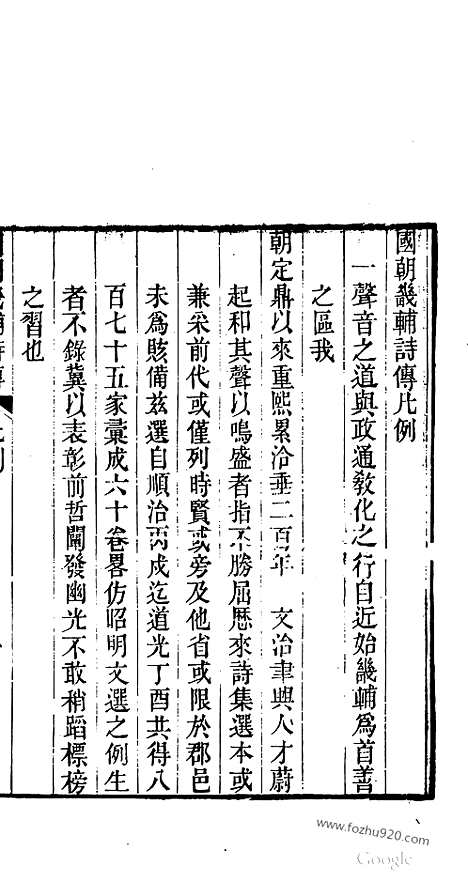 國朝畿輔詩傳凡例
一聲音之道與政通敎化之行自近始畿輔爲首善
之區我
朝定鼎以來重熙累洽垂二百年　文治聿興人才蔚
起和其聲以鳴盛者指不勝屈歷來詩集選本或
兼采前代或僅列時賢或旁及他省或限於郡邑
未爲賅備兹選自順治丙戍迄道光丁酉共得八
百七十五家彙成六十卷畧仿昭明文選之例生
者不錄冀以表彰前哲闡發幽光不敢稍蹈標榜
之習也
www.fozhu920.com
Google